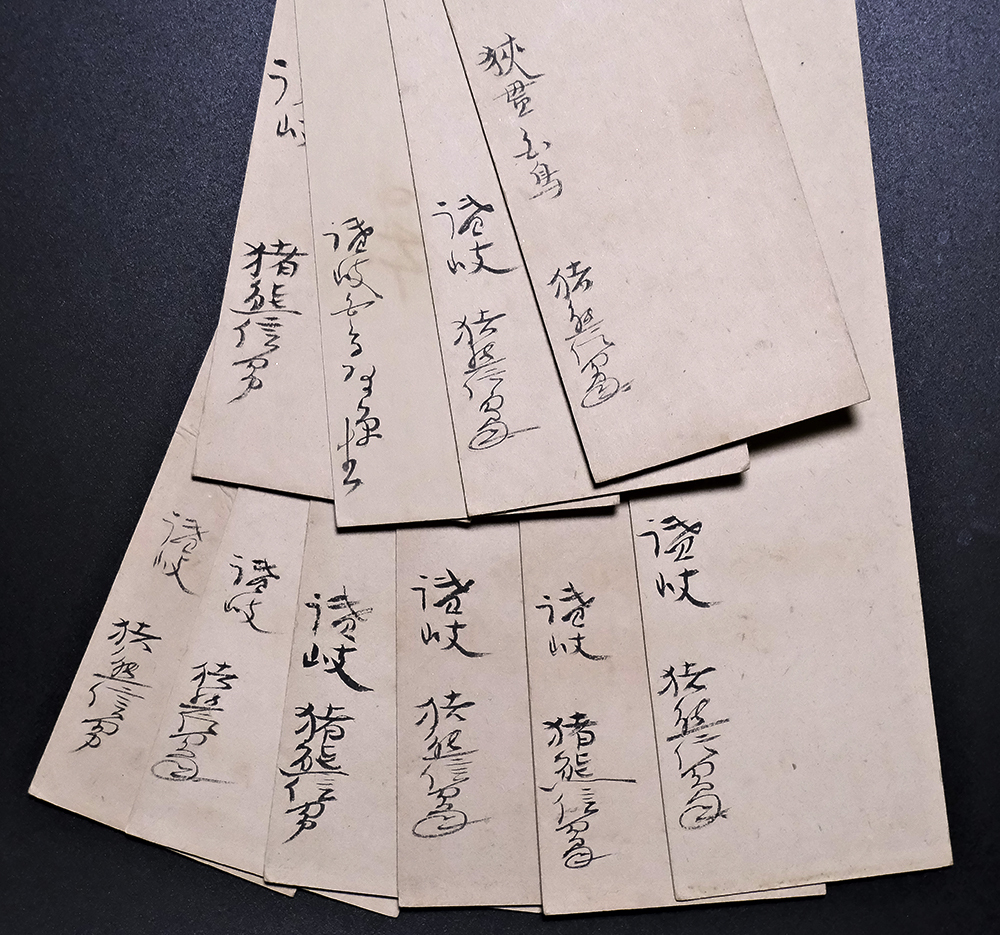 狹貫
白鳥
猪熊信男
讃岐
猪熊信男
讃岐
猪熊信男
岐
猪熊信男
讃岐
猪熊信男
讃岐
猪熊信男
讃岐
猪熊信男
讃岐
猪熊信男
讃岐
猪熊信男
讃岐
猪熊信男